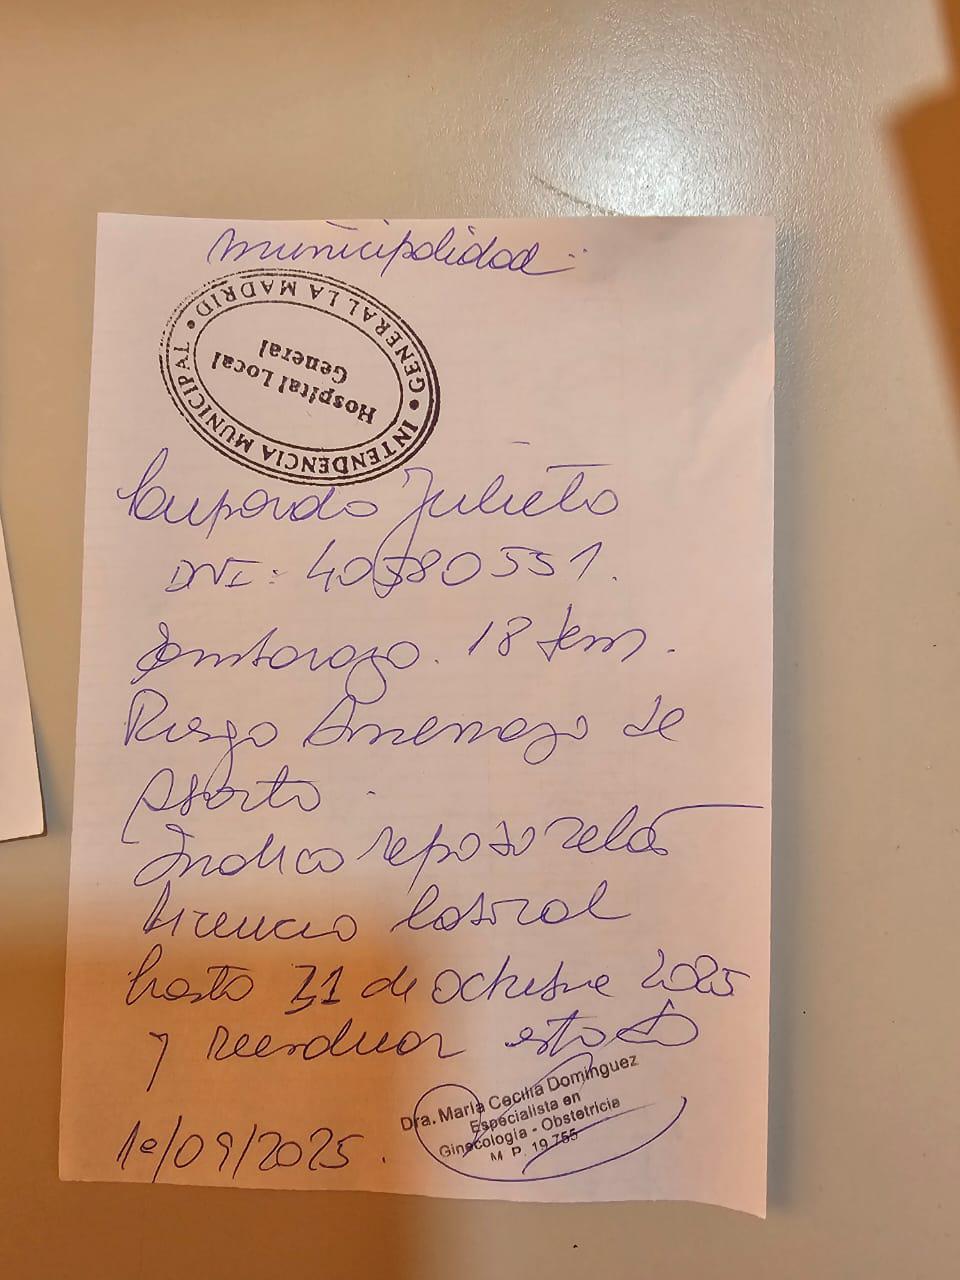 Municipalidad:
INTENDENCIA MUNICIPAL • GENERAL LA MADRID •
Hospital Local
General
Julieta
DNI: 40380551.
Embarazo. 18 sem.
Riesgo Amenaza de
Aborto.
Indico reposo relat
Licencia laboral
hasta 31 de octubre 2025
y reevaluar estado
Dra. María Cecilia Domínguez
Especialista en
Ginecología - Obstetricia
M P. 19.755
1º/09/2025.